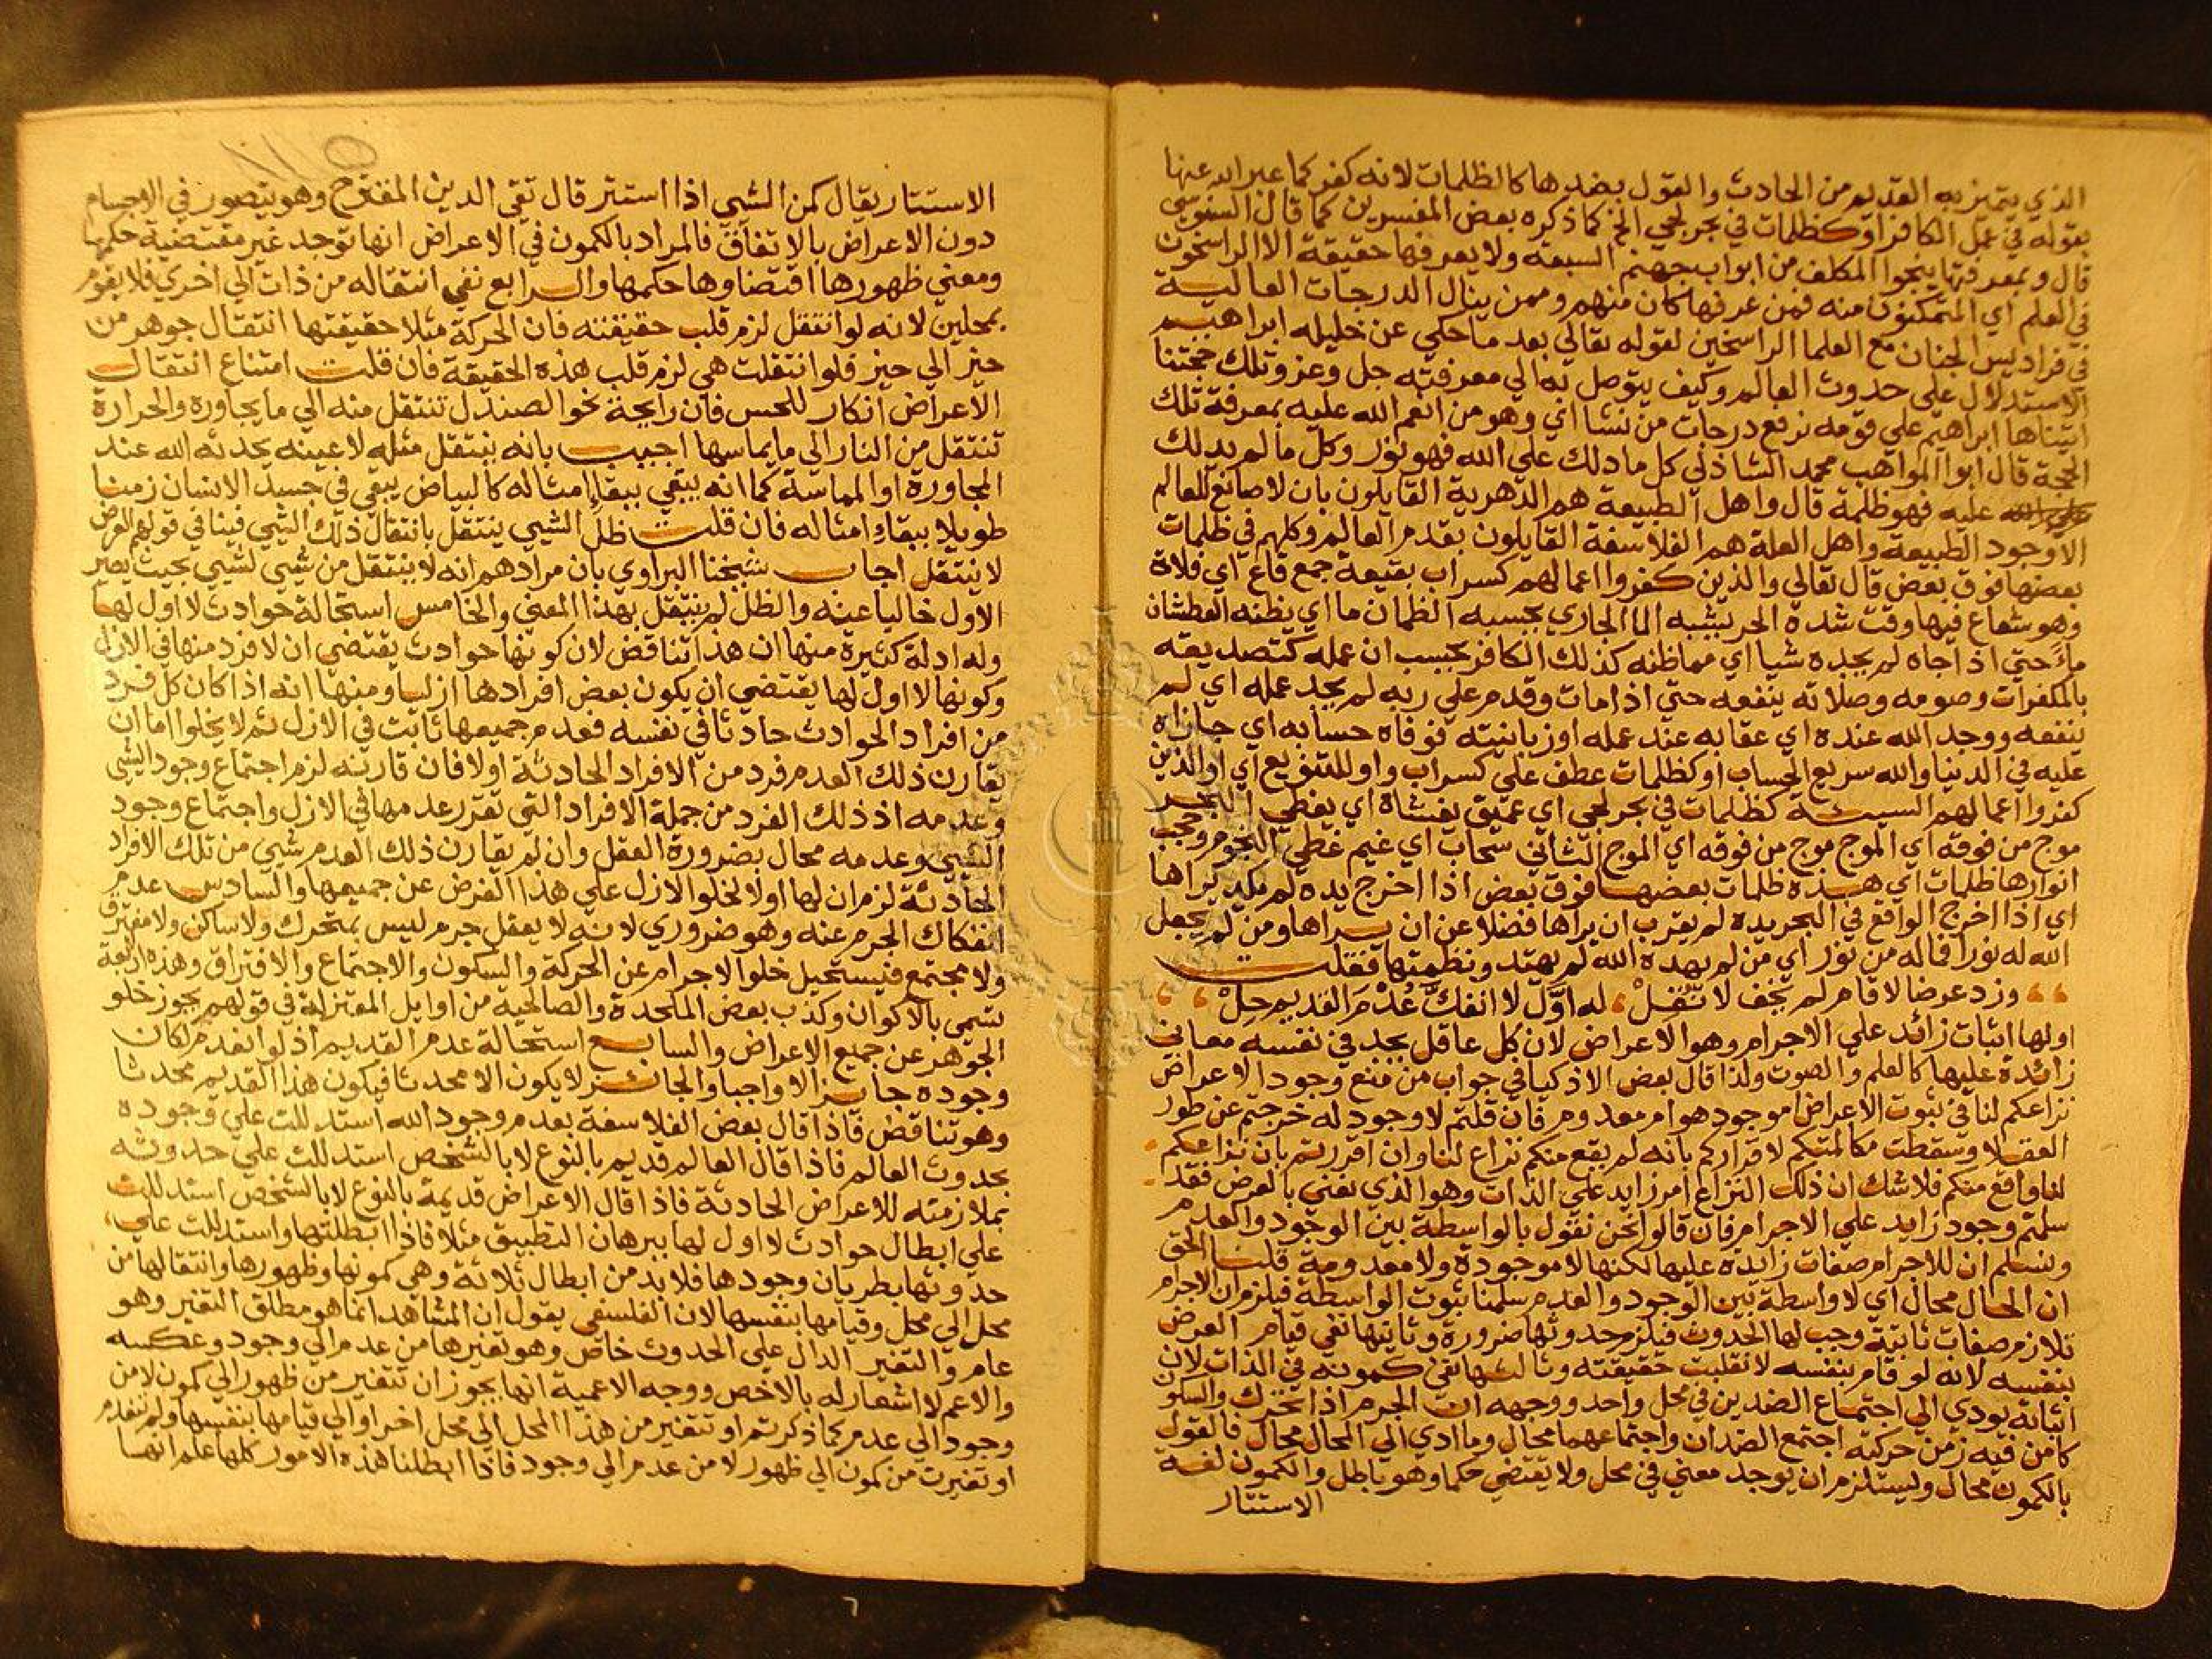 الذي يتميز به القديم من الحادث والقول بضدها كالظلمات لانه كفر كما عبر الله عنها
بقوله في عمل الكافر او كظلمات في بحر لجي الخ كما ذكره بعض المفسرين كما قال السنوسي
قال وبمعرفتها ينجوا المكلف من ابواب جهنم السبعة ولا يعرفها حقيقة الا الراسخون
في العلم اي المتمكنون منه فمن عرفها كان منهم وممن ينال الدرجات العالية
في فراديس الجنان مع العلما الراسخين لقوله تعالي بعد ما حكي عن خليله ابراهيم
الاستدلال علي حدوث العالم وكيف يتوصل به الي معرفته جل وعز وتلك حجتنا
اتيناها ابراهيم علي قومه نرفع درجات من نشا اي وهو من انعم الله عليه بمعرفة تلك
الحجة قال ابوا المواهب محمد الشاذلي كل ما دلك علي الله فهو نور وكل ما لم يدلك
عليه فهو ظلمة قال واهل الطبيعة هم الدهرية القايلون بان لا صانع للعالم
الا وجود الطبيعة واهل العلة هم الفلاسفة القايلون بقدم العالم وكلهم في ظلمات
بعضها فوق بعض قال تعالي والذين كفروا اعمالهم كسراب بقيعة جمع قاع اي فلاة
وهو شعاع فيها وقت شدة الحر يشبه الما الجاري يحسبه الظمان ما اي يظنه العطشان
ماً حتي اذا جاه لم يجده شيا اي مما ظنه كذلك الكافر يحسب ان عمله كتصديقه
بالمكفرات وصومه وصلاته ينفعه حتي اذا مات وقدم علي ربه لم يجد عمله اي لم
ينفعه ووجد الله عنده اي عقابه عند عمله او زبانيته فوفاه حسابه اي جازاه
عليه في الدنيا والله سريع الحساب او كظلمات عطف علي كسراب واو للتنويع اي او الذين
كفروا اعمالهم السيئة كظلمات في بحر لجي اي عميق يغشاه اي يغطي البحر
موج من فوقه اي الموج موج من فوقه اي الموج الثاني سحاب اي غيم غطي النجوم وحجب
انوارها ظلمات اي هذه ظلمات بعضها فوق بعض اذا اخرج يده لم يكد يراها
اي اذا اخرج الواقع في البحر يده لم يقرب ان يراها فضلا عن ان يراها ومن لم يجعل
الله له نورا فماله من نور اي من لم يهده الله لم يهتد ونظمتها فقلت
وزد عرضا لا قام لم يخف لا نُقِلْ له اوّل لا انفك عُدْم القديم حِلْ
اولها اثبات زائد علي الاجرام وهو الاعراض لان كل عاقل يجد في نفسه معاني
زائدة عليها كالعلم والصوت ولذا قال بعض الاذكيا في جواب من منع وجود الاعراض
نزاعكم لنا في ثبوت الاعراض اموجود هو ام معدوم فان قلتم لا وجود له خرجتم عن طور
العقلا وسقطت مكالمتكم لاقراركم بانه لم يقع منكم نزاع لنا وان اقررتم بان نزاعكم
لنا واقع منكم فلا شك ان ذلك النزاع امر زايد علي الذات وهو الذي نعني بالعرض فقد
سلمتم وجود زايد علي الاجرام فان قالوا نحن نقول بالواسطة بين الوجود والعدم
ونسلم ان للاجرام صفات زائدة عليها لكنها لا موجودة ولا معدومة قلنا الحق
ان الحال محال اي لا واسطة بين الوجود والعدم سلمنا ثبوت الواسطة فيلزم ان الاجرام
تلازم صفات ثابتة وجب لها الحدوث فيلزم حدوثها ضرورة وثانيها نفي قيام العرض
بنفسه لانه لو قام بنفسه لانقلبت حقيقته وثالثها نفي كمونه في الذات لان
اثباته يودي الي اجتماع الضدين في محل واحد ووجهه ان الجرم اذا تحرك والسكون
كامن فيه زمن حركته اجتمع الضدان واجتماعهما محال وما ادي الي المحال محال فالقول
بالكمون محال ويستلزم ان يوجد معني في محل ولا يقتضي حكما وهو باطل والكمون لغة
الاستتار
الاستتار يقال كمن الشي اذا استتر قال تقي الدين المقترح وهو يتصور في الاجسام
دون الاعراض بالاتفاق فالمراد بالكمون في الاعراض انها توجد غير مقتضية حكمها
ومعني ظهورها اقتضاوها حكمها والرابع نفي انتقاله من ذات الي اخري فلا يقوم
بمحلين لانه لو انتقل لزم قلب حقيقته فان الحركة مثلا حقيقتها انتقال جوهر من
حيز الي حيز فلو انتقلت هي لزم قلب هذه الحقيقة فان قلت امتناع انتقال
الاعراض انكار للحس فان رايحة نحو الصندل تنتقل منه الي ما يجاوره والحرارة
تنتقل من النار الي ما يماسها اجيب بانه ينتقل مثله لا عينه يحدثه الله عند
المجاورة او المماسة كما انه يبقي ببقا امثاله كالبياض يبقي في جسد الانسان زمنا
طويلا ببقاء امثاله فان قلت ظل الشي ينتقل بانتقال ذلك الشي فينافي قولهم العرض
لا ينتقل اجاب شيخنا البراوي بان مرادهم انه لا ينتقل من شي لشي بحيث يصير
الاول خاليا عنه والظل لم ينتقل بهذا المعني والخامس استحالة حوادث لا اول لها
وله ادلة كثيرة منها ان هذا تناقض لان كونها حوادث يقتضي ان لا فرد منها في الازل
وكونها لا اول لها يقتضي ان يكون بعض افرادها ازليا ومنها انه اذا كان كل فرد
من افراد الحوادث حادثا في نفسه فعدم جميعها ثابت في الازل ثم لا يخلوا اما ان
يقارن ذلك العدم فرد من الافراد الحادثة اولا فان قارنه لزم اجتماع وجود الشي
وعدمه اذ ذلك الفرد من جملة الافراد التي تقرر عدمها في الازل واجتماع وجود
الشي وعدمه محال بضرورة العقل وان لم يقارن ذلك العدم شي من تلك الافراد
الحادثة لزم ان لها اولا لخلو الازل علي هذا الفرض عن جميعها والسادس عدم
انفكاك الجرم عنه وهو ضروري لانه لا يعقل جرم ليس بمتحرك ولا ساكن ولا مفترق
ولا مجتمع فيستحيل خلو الاجرام عن الحركة والسكون والاجتماع والافتراق وهذه اربعة
تسمي بالاكوان وكذب بعض الملحدة والصالحية من اوايل المعتزلة في قولهم يجوز خلو
الجوهر عن جميع الاعراض والسابع استحالة عدم القديم اذ لو انعدم لكان
وجوده جايزا لا واجبا والجائز لا يكون الا محدثا فيكون هذا القديم محدثا
وهو تناقض فاذا قال بعض الفلاسفة بعدم وجود الله استدللت علي وجوده
بحدوث العالم فاذا قال العالم قديم بالنوع لا بالشخص استدللت علي حدوثه
بملازمته للاعراض الحادثة فاذا قال الاعراض قديمة بالنوع لا بالشخص استدللت
علي ابطال حوادث لا اول لها ببرهان التطبيق مثلا فاذا ابطلتها واستدللت علي
حدوثها بطريان وجودها فلا بد من ابطال ثلاثة وهي كمونها وظهورها وانتقالها من
محل الي محل وقيامها بنفسها لان الفلسفي يقول ان المشاهد انما هو مطلق التغير وهو
عام والتغير الدال علي الحدوث خاص وهو تغيرها من عدم الي وجود وعكسه
والاعم لا اشعار له بالاخص ووجه الاعمية انها يجوز ان تتغير من ظهور الي كمون لا من
وجود الي عدم كما ذكرتم او تتغير من هذا المحل الي محل اخر او الي قيامها بنفسها ولم تنعدم
او تغيرت من كمون الي ظهور لا من عدم الي وجود فاذا ابطلنا هذه الامور كلها علم انها